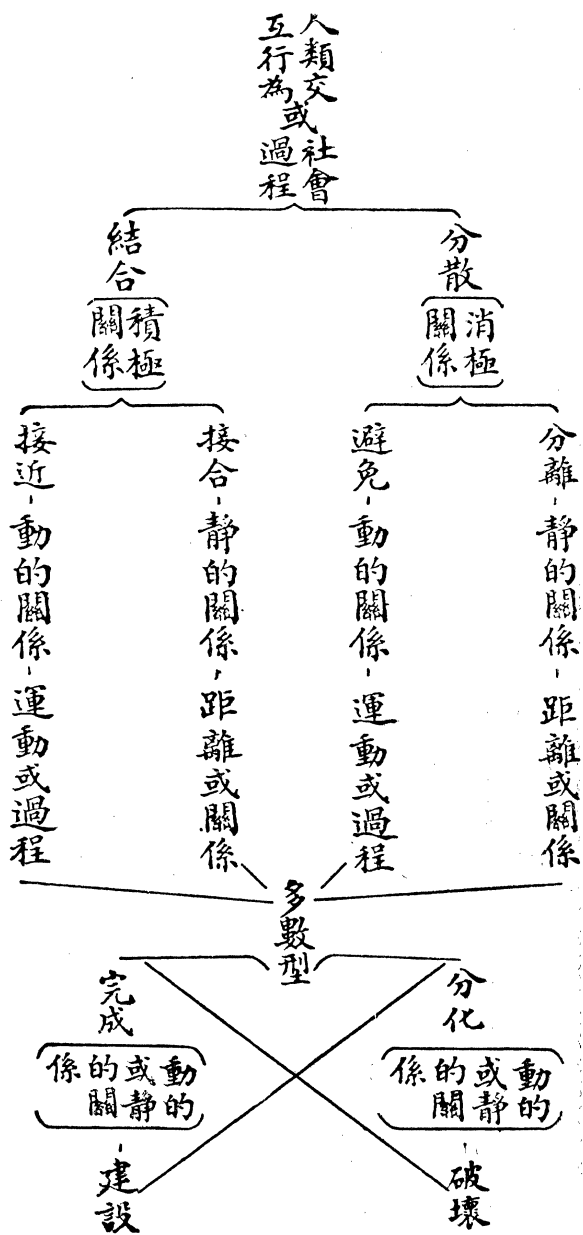 人類交
互行為
或
社會
過程
分散
消極
關係
結合
積極
關係
分離-靜的關係-距離或關係
避免-動的關係-運動或過程
接合-靜的關係-距離或關係
接近-動的關係-運動或過程
多數型
分化
動的
或靜
的關
係
-破壞
完成
動的
或靜
的關
係
-建設